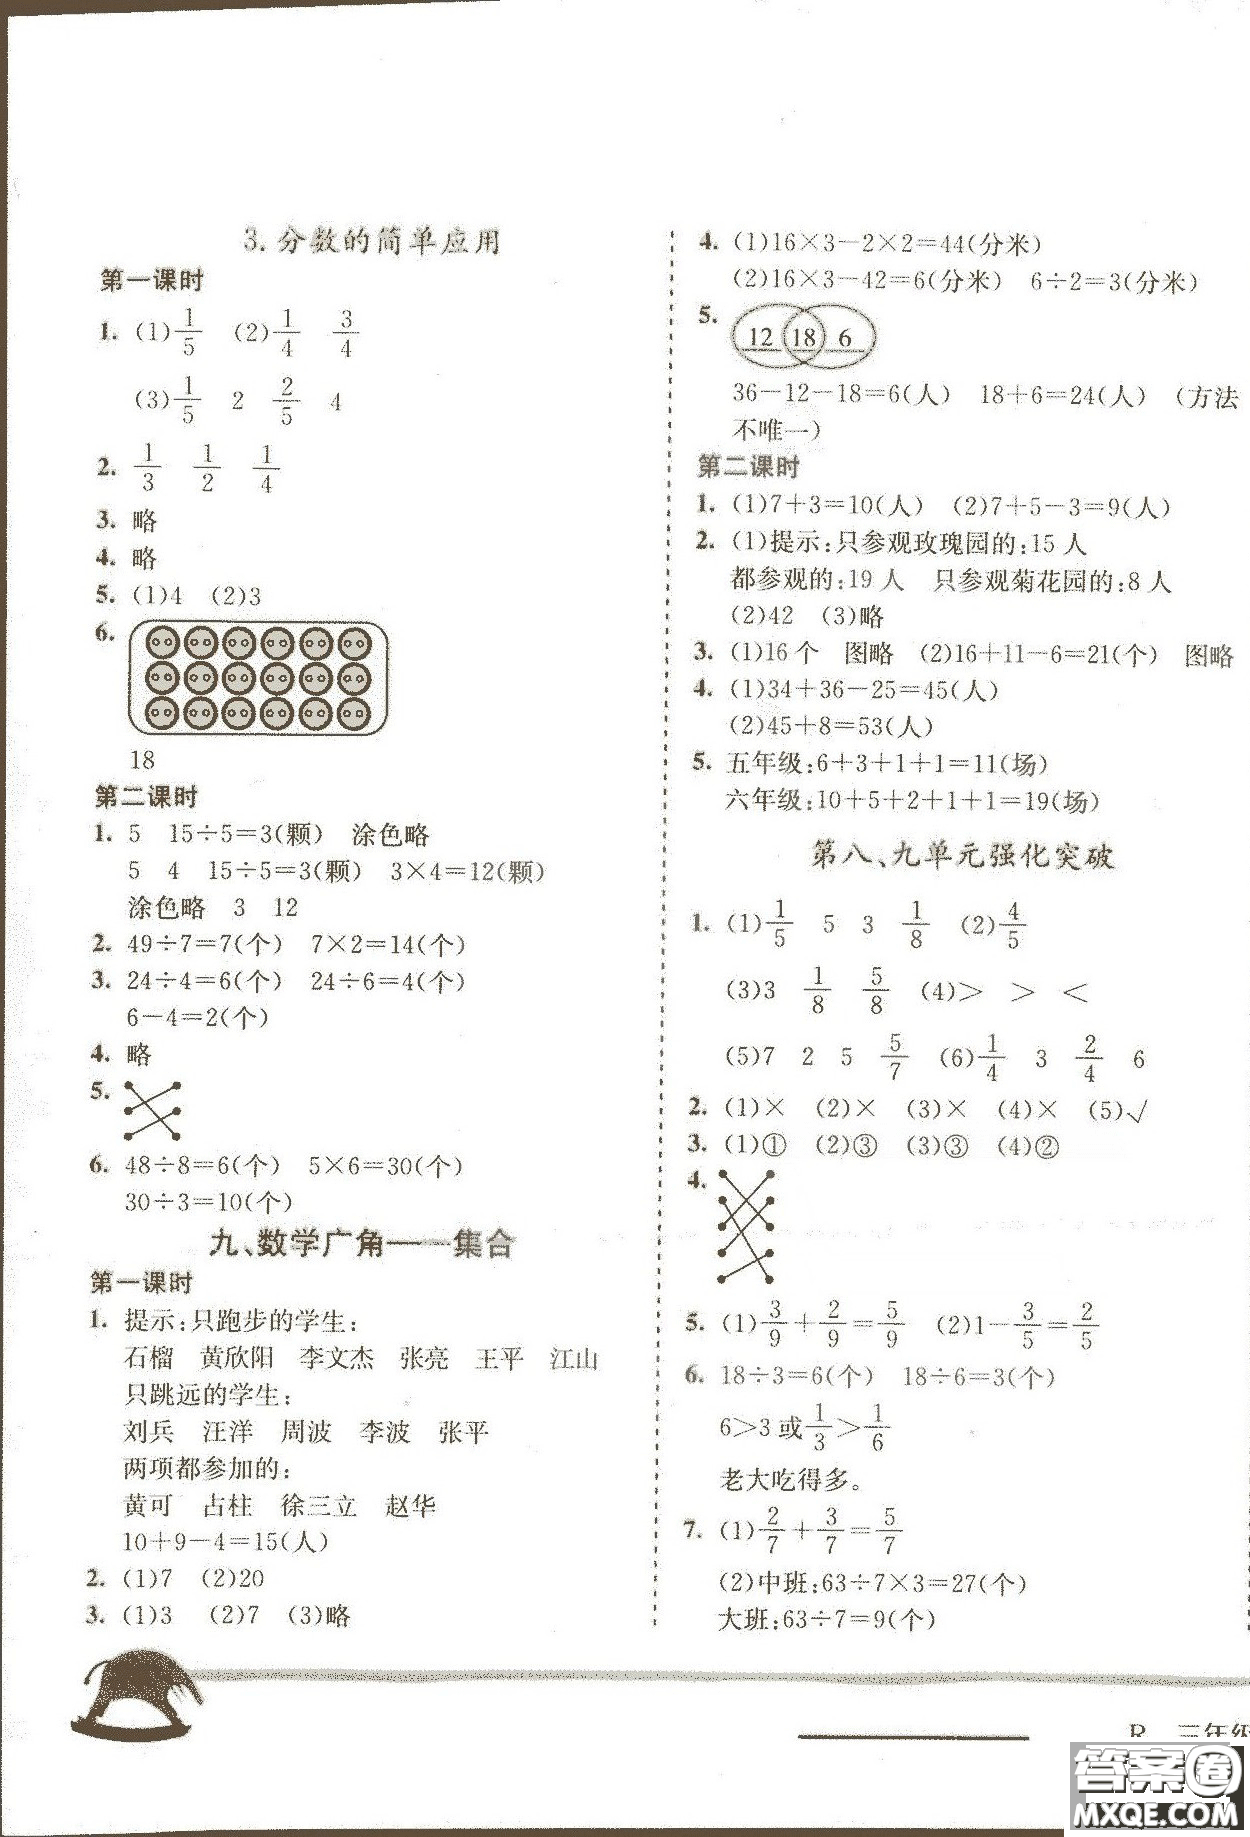 3.分数的简单应用
第一课时
1. (1)1/5 (2)1/4 3/4
(3)1/5 2 2/5 4
2. 1/3 1/2 1/4
3. 略
4. 略
5. (1)4 (2)3
6.
18
第二课时
1. 5 15÷5=3(颗) 涂色略
5 4 15÷5=3(颗) 3×4=12(颗)
涂色略 3 12
2. 49÷7=7(个) 7×2=14(个)
3. 24÷4=6(个) 24÷6=4(个)
6-4=2(个)
4. 略
5.
6. 48÷8=6(个) 5×6=30(个)
30÷3=10(个)
九、数学广角——集合
第一课时
1. 提示:只跑步的学生:
石榴 黄欣阳 李文杰 张亮 王平 江山
只跳远的学生:
刘兵 汪洋 周波 李波 张平
两项都参加的:
黄可 占柱 徐三立 赵华
10+9-4=15(人)
2. (1)7 (2)20
3. (1)3 (2)7 (3)略
4. (1)16×3-2×2=44(分米)
(2)16×3-42=6(分米) 6÷2=3(分米)
5. 12 18 6
36-12-18=6(人) 18+6=24(人) (方法
不唯一)
第二课时
1. (1)7+3=10(人) (2)7+5-3=9(人)
2. (1)提示:只参观玫瑰园的:15人
都参观的:19人 只参观菊花园的:8人
(2)42 (3)略
3. (1)16个 图略 (2)16+11-6=21(个) 图略
4. (1)34+36-25=45(人)
(2)45+8=53(人)
5. 五年级:6+3+1+1=11(场)
六年级:10+5+2+1+1=19(场)
第八、九单元强化突破
1. (1)1/5 5 3 1/8 (2)4/5
(3)3 1/8 5/8 (4)> > <
(5)7 2 5 5/7 (6)1/4 3 2/4 6
2. (1)× (2)× (3)× (4)× (5)√
3. (1)① (2)③ (3)③ (4)②
4.
5. (1)3/9+2/9=5/9 (2)1-3/5=2/5
6. 18÷3=6(个) 18÷6=3(个)
6>3或1/3>1/6
老大吃得多。
7. (1)2/7+3/7=5/7
(2)中班:63÷7×3=27(个)
大班:63÷7=9(个)
R 三年级
答案圈
MXQE.COM